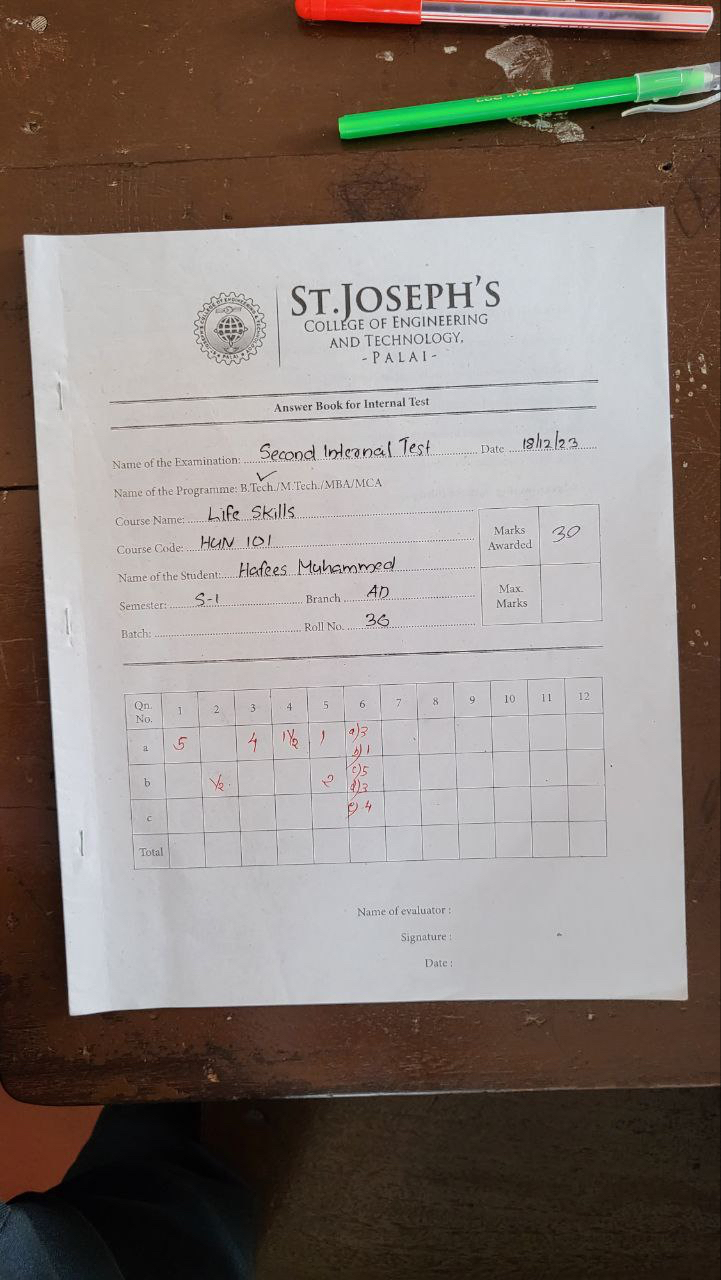 ST.JOSEPH'S
COLLEGE OF ENGINEERING
AND TECHNOLOGY,
- PALAI -
Answer Book for Internal Test
Name of the Examination: Second Internal Test Date 18/12/23
Name of the Programme: B.Tech./M.Tech./MBA/MCA
Course Name: Life Skills
Course Code: HUN 101
Marks Awarded 30
Name of the Student: Hafees Muhammed
Semester: S-1 Branch AD
Max. Marks
Batch: Roll No. 36
Qn. No. 1 2 3 4 5 6 7 8 9 10 11 12
a 5 4 1½ 1 a)3
b)1
b ½ 2 c)5
d)3
c e)4
Total
Name of evaluator :
Signature :
Date :